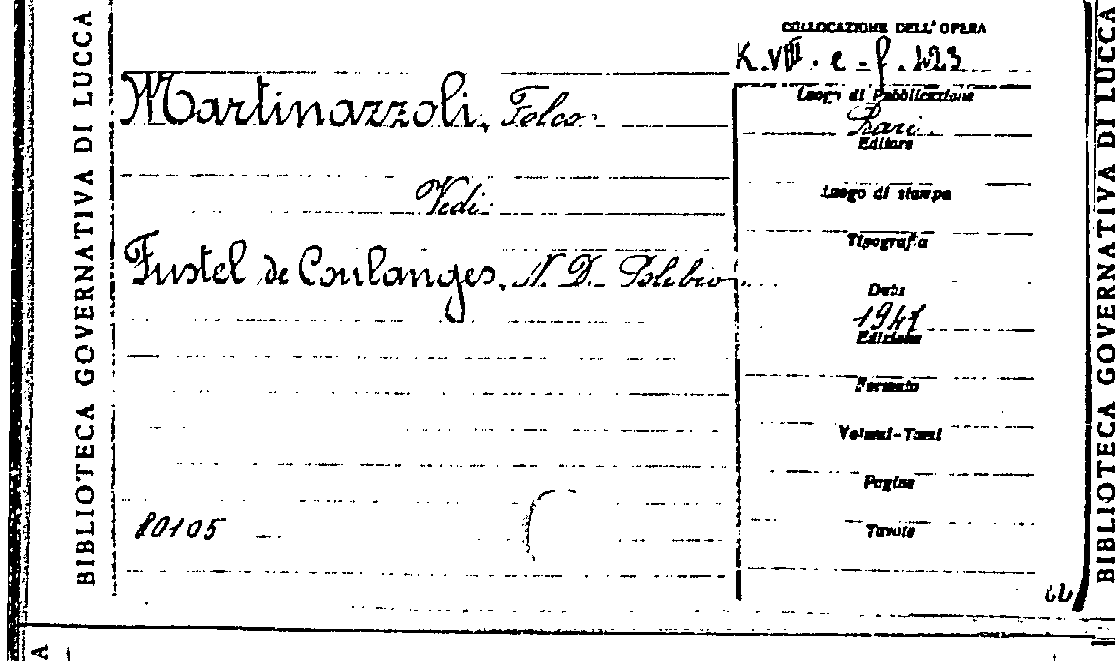 BIBLIOTECA GOVERNATIVA DI LUCCA
COLLOCAZIONE DELL'OPERA
K.VIII.e-f.223
Martinazzoli, Folco.
Luogo di Pubblicazione
Bari.
Editore
Luogo di stampa
Vedi:
Tipografia
Fustel de Coulanges, N. D.
Data
1947
Edizione
Formato
Volumi-Tomi
Pagine
80105
Tavole
BIBLIOTECA GOVERNATIVA DI LUCCA